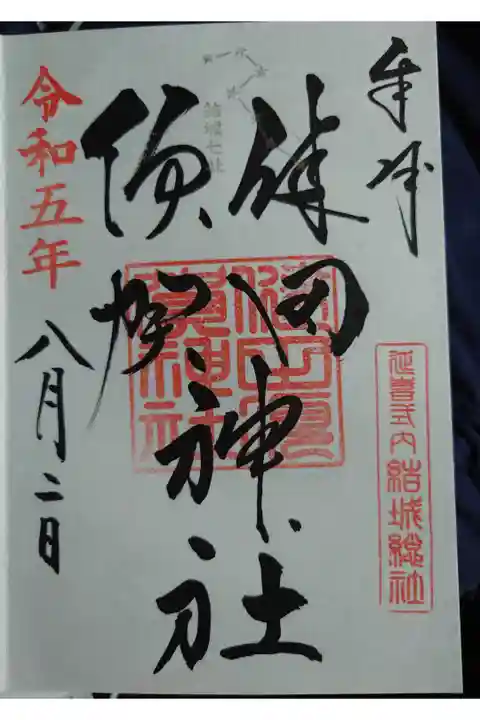 奉拝
延喜式内 結城總社
健田
須賀
神社
結城七社
健田須
賀神社
令和五年八月二日